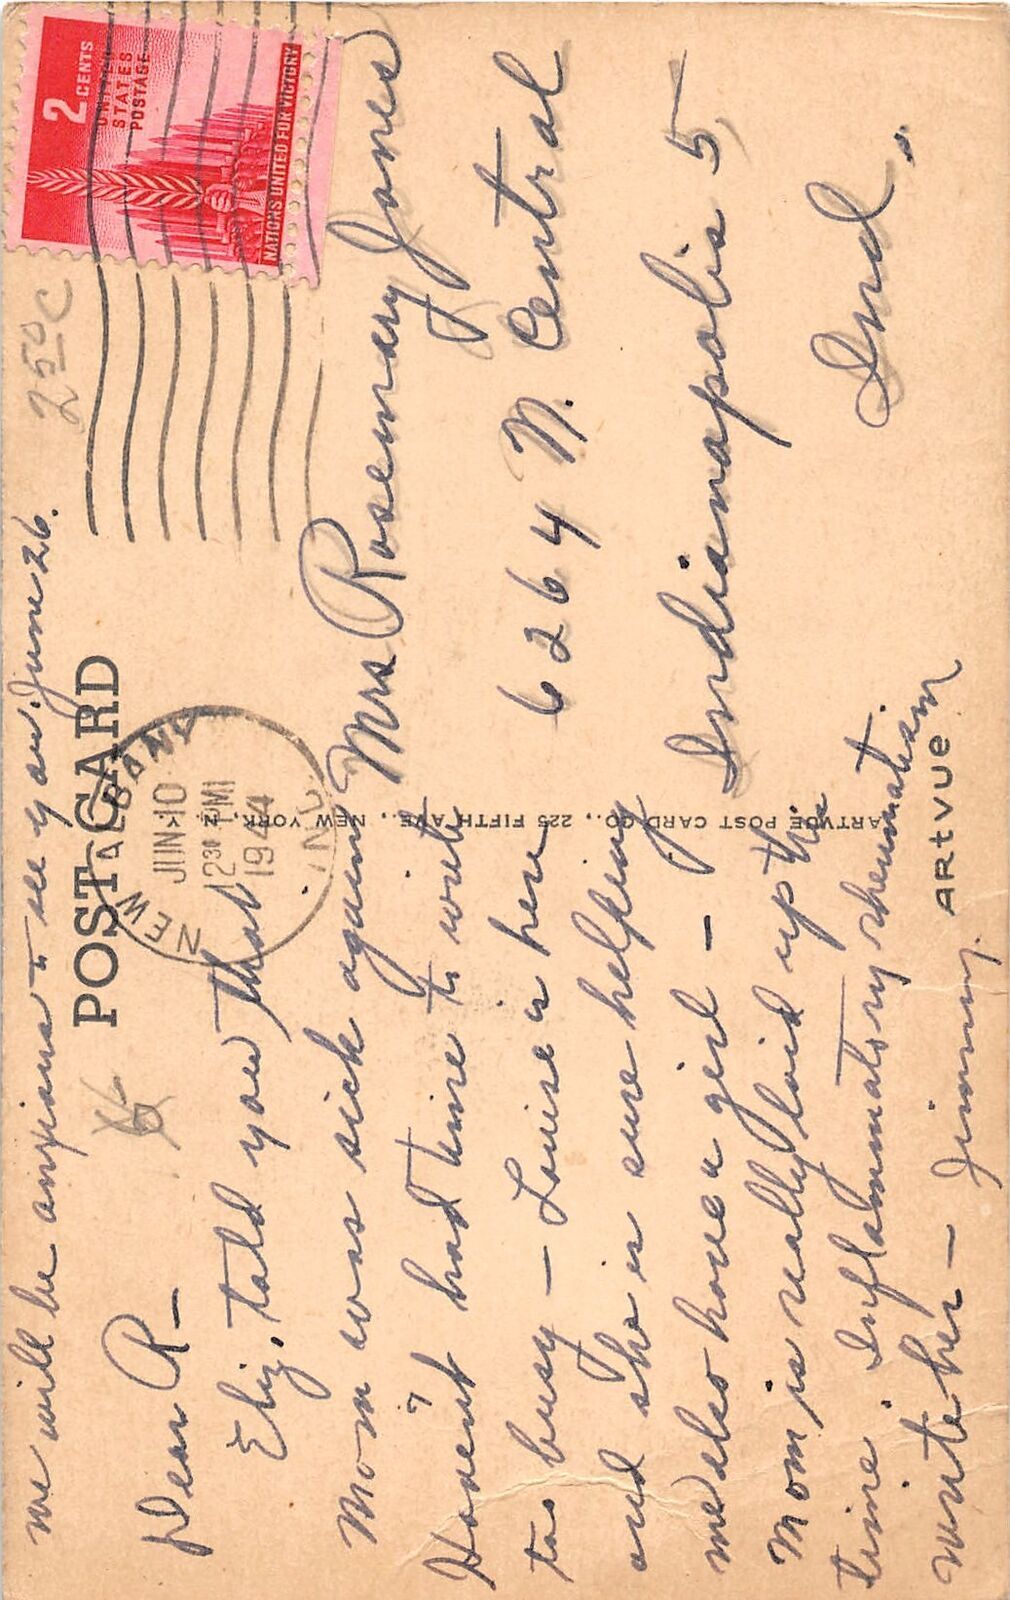 we will be anxious to see you June 26.
POST CARD
25¢
Dear R —
Eliz. told you that
Mom was sick again
Haven't had time to write
too busy — Louise is here
and she is sure helping
me also have a girl —
Mom is really laid up this
time. Inflammatory rheumatism
write her — Jimmy.
NEW ALBANY
JUN 10
12 30 PM
1944
IND.
2 CENTS
UNITED
STATES
POSTAGE
NATIONS UNITED FOR VICTORY
Mrs Rosemary Jones
6264 N. Central
Indianapolis 5,
Ind.
ARTVUE POST CARD CO., 225 FIFTH AVE., NEW YORK, N. Y.
ARTVUE